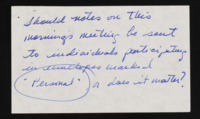 Should notes on this
mornings meeting be sent
to individuals participating
in envelopes marked
"Personal" or does it matter?